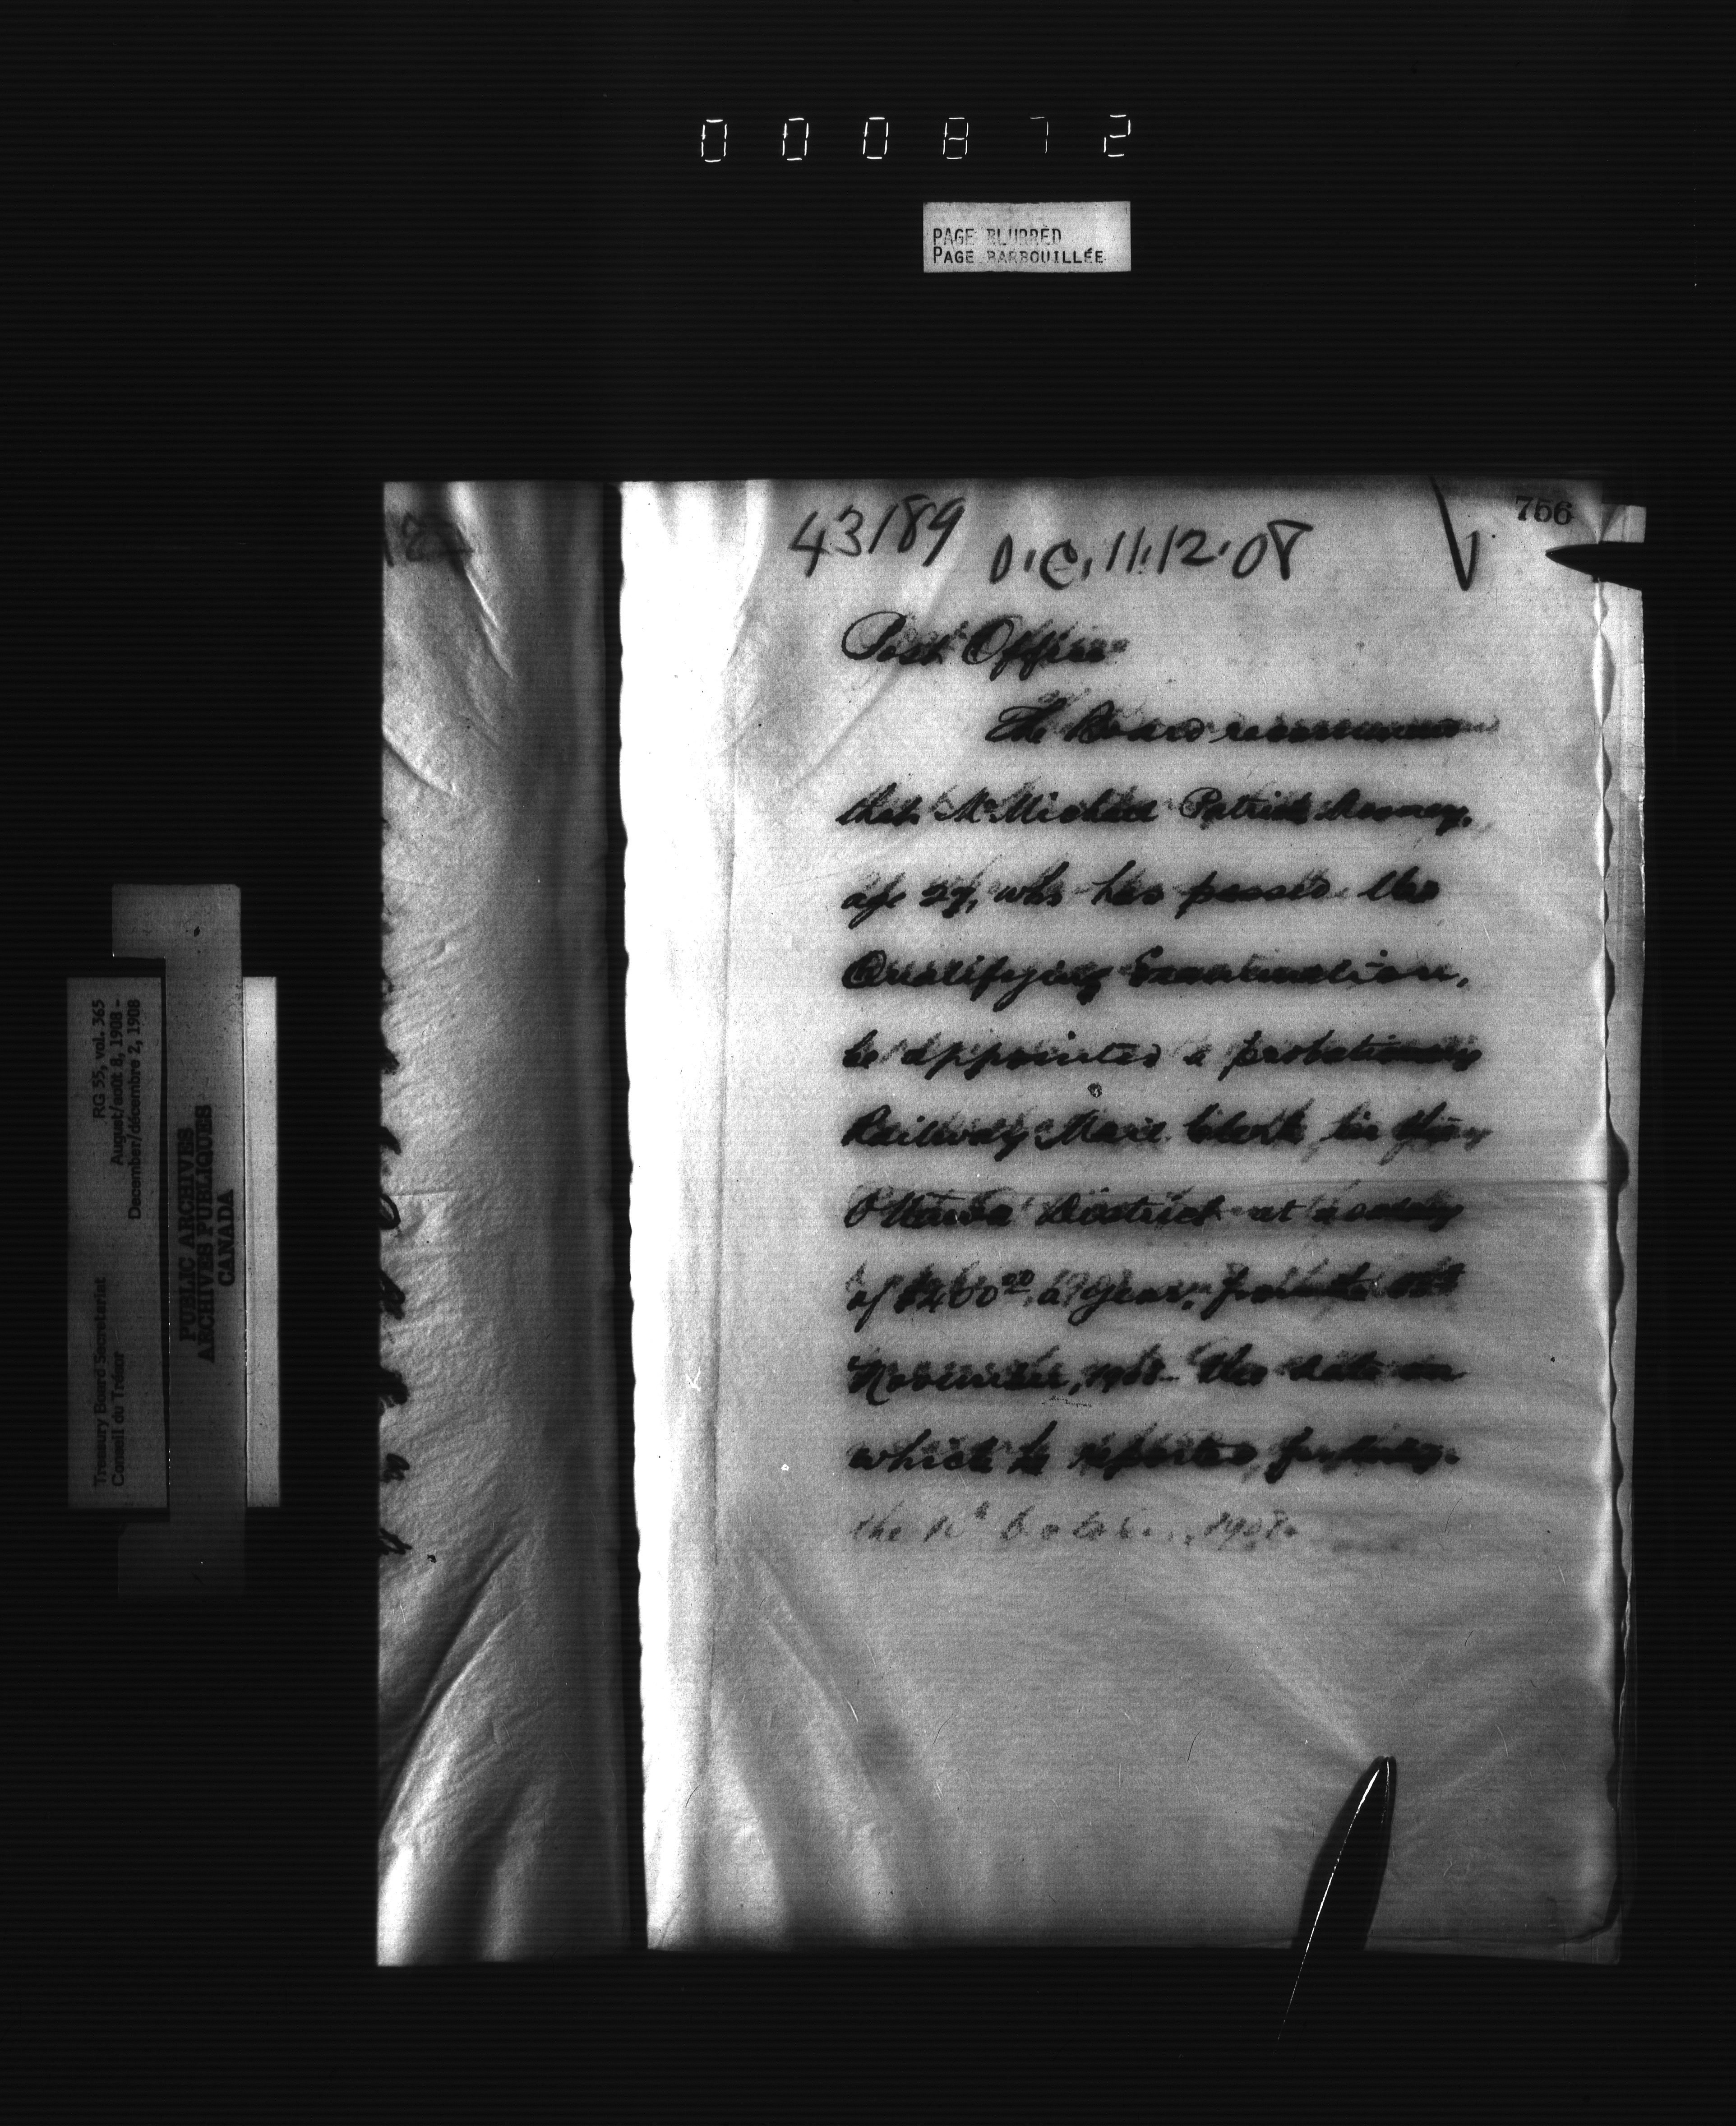 000872
PAGE BLURRED
PAGE BARBOUILLÉE
756
43189 O.C. 11.12.08
Post Office
The Board recommend
that Mr Michael Patrick
age 27, who has passed the
Qualifying Examination,
be appointed a probationary
Railway Mail Clerk, in the
Ottawa District at a salary
of $400 00 a year, from the
November, 1908 the date on
which he reported for duty.
the October, 1908.
RG 55, vol. 365
August/août 8, 1908 -
December/décembre 2, 1908
Treasury Board Secretariat
Conseil du Trésor
PUBLIC ARCHIVES
ARCHIVES PUBLIQUES
CANADA